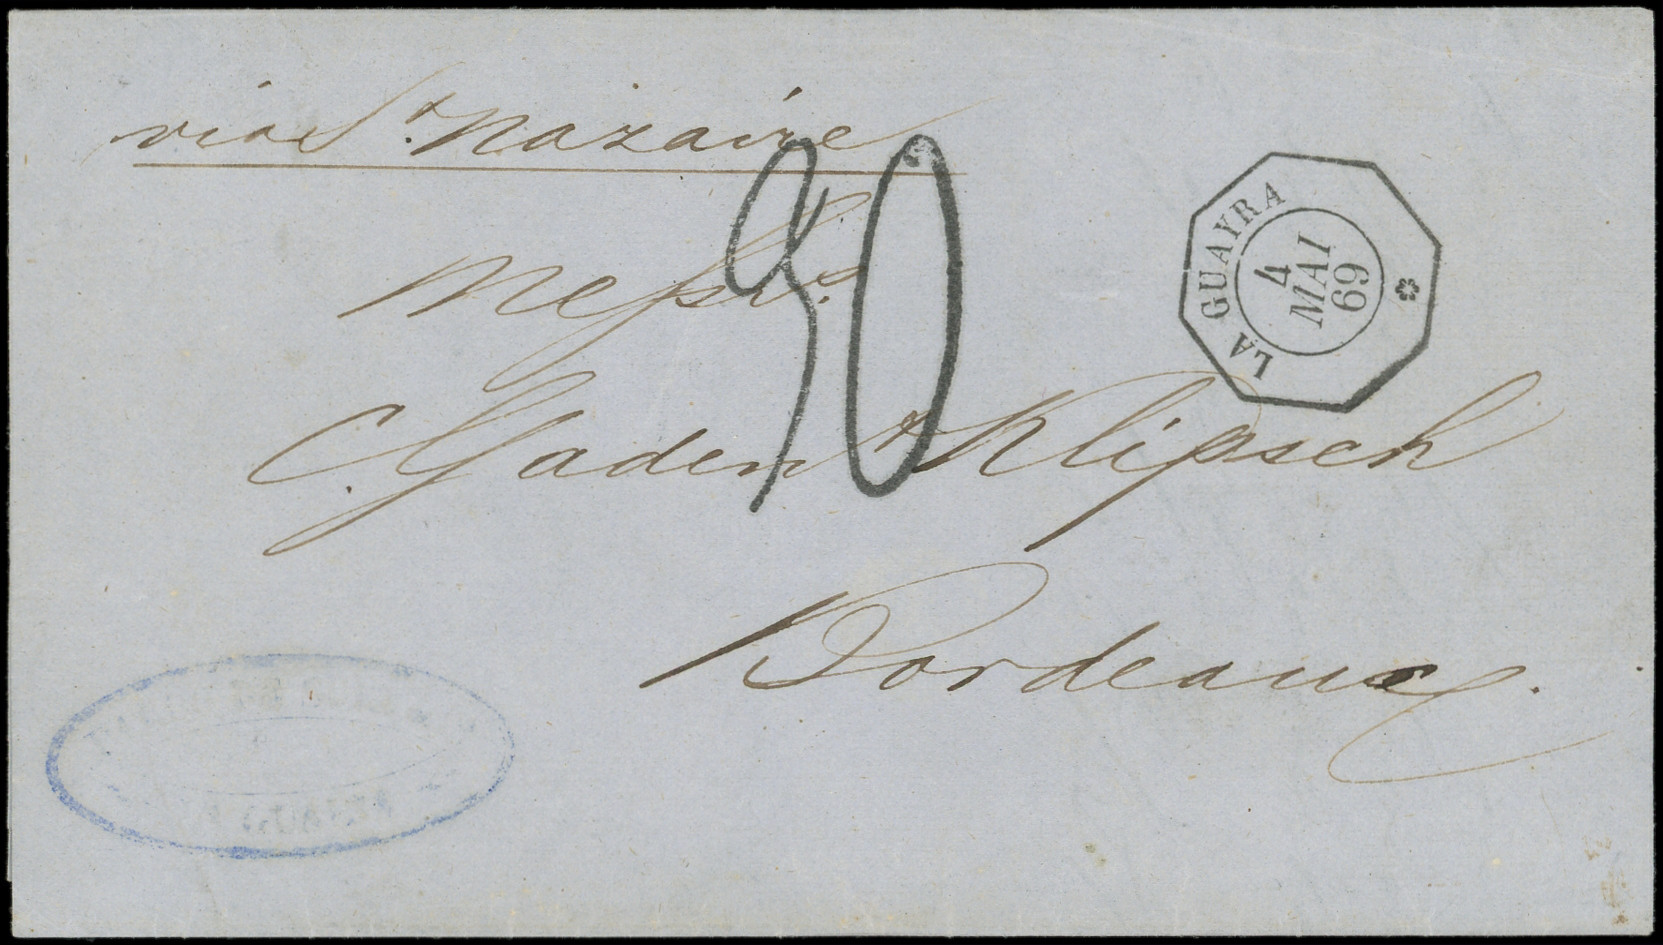 via St. Nazaire
90
Messrs.
LA GUAYRA
4
MAI
69
Gaden & Klipsch
Bordeaux.